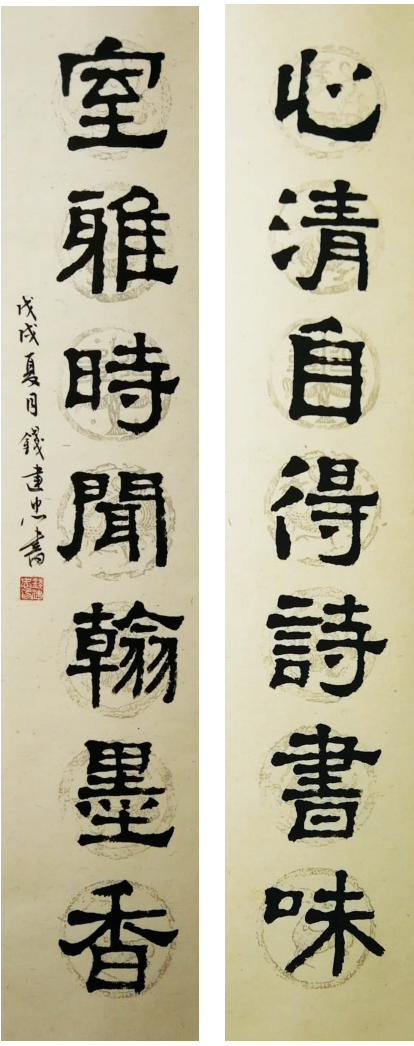 心清自得詩書味
室雅時聞翰墨香
戊戌夏月錢建忠書